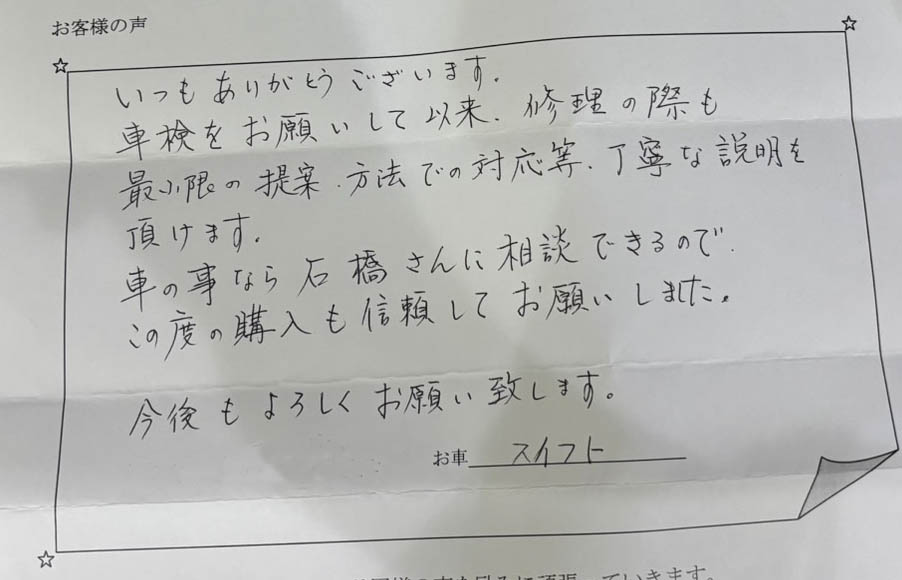 お客様の声
いつもありがとうございます。
車検をお願いして以来、修理の際も
最小限の提案、方法での対応等、丁寧な説明を
頂けます。
車の事なら石橋さんに相談できるので、
この度の購入も信頼してお願いしました。
今後もよろしくお願い致します。
お車 スイフト
頑張っていきます。